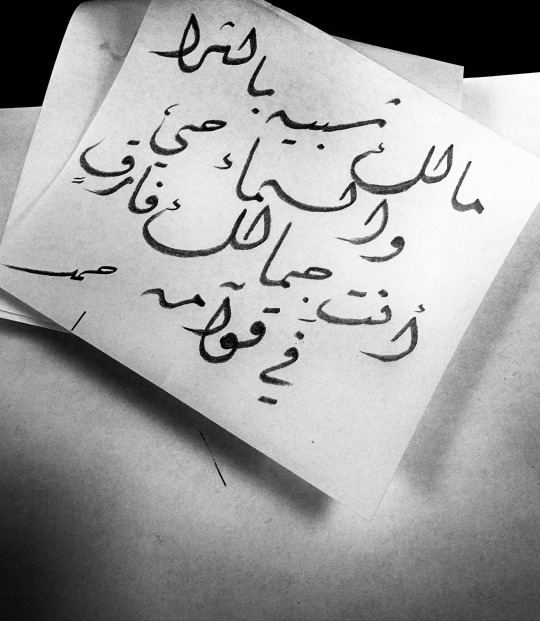 مالك شبيه بالثرا
والسماء حيّ
أنت جمالك فارقٍ
في قوامه
حمد